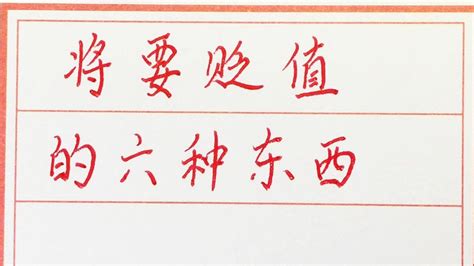 将要贬值
的六种东西